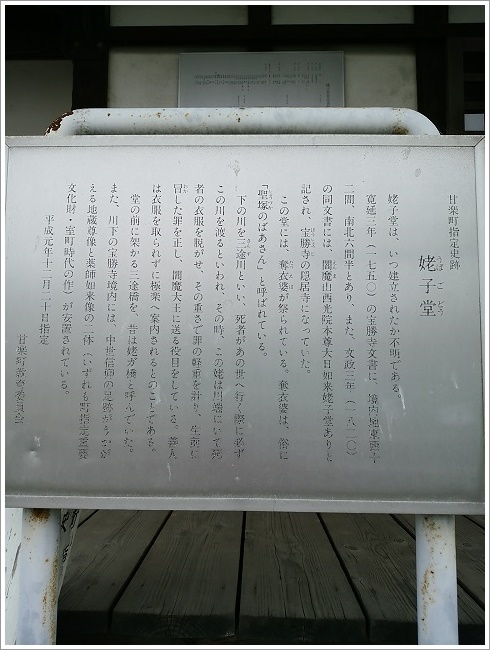 甘楽町指定史跡
姥子堂
うばこどう
姥子堂は、いつ建立されたか不明である。
寛延三年(一七五〇)の宝勝寺文書に、境内地東西十
二間、南北六間半とあり、また、文政三年(一八二〇)
の同文書には、閻魔山西光院本尊大日如来姥子堂ありと
記され、宝勝寺の隠居寺になっていた。
この堂には、奪衣婆が祭られている。奪衣婆は、俗に
「聖塚のばあさん」と呼ばれている。
下の川を三途川といい、死者があの世へ行く際に必ず
この川を渡るといわれ、その時、この姥は川端にいて死
者の衣服を脱がせ、その重さで罪の軽重を計り、生前に
冒した罪を正し、閻魔大王に送る役目をしている。善人
は衣服を取られずに極楽へ案内されるとのことである。
堂の前に架かる三途橋を、昔は姥が橋と呼んでいた。
また、川下の宝勝寺境内には、中世信仰の足跡がうかが
える地蔵尊像と薬師如来像の一体(いずれも町指定重要
文化財・室町時代の作)が安置されている。
平成元年十二月二十日指定
甘楽町教育委員会